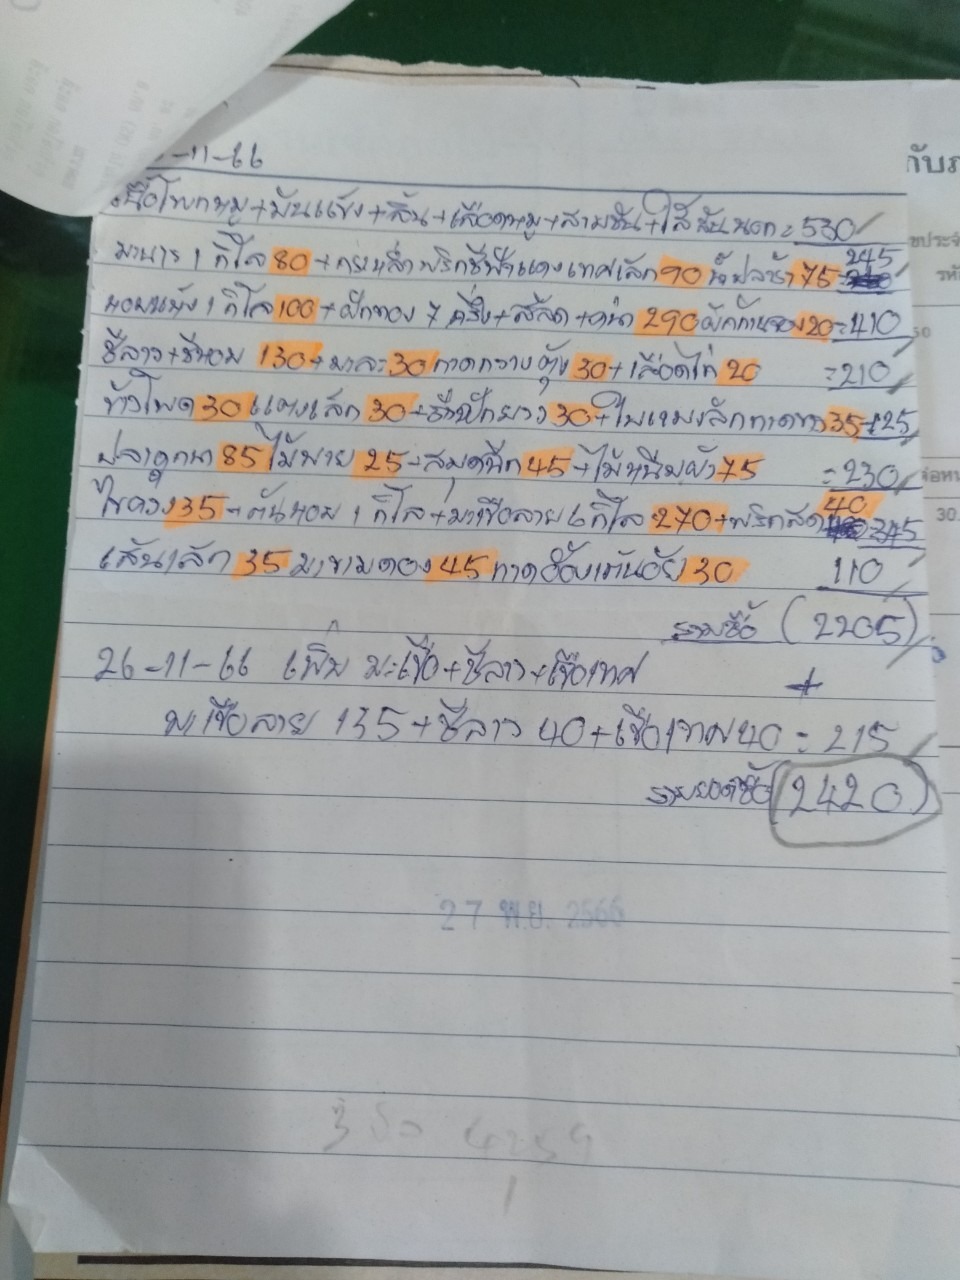 -11-66
เนื้อโพกหมู+มันแข็ง+ลิ้น+เลือดหมู+สามชั้น+ใส้ตันนอก=530
245
มะนาว 1 กิโล 80+กะหล่ำพริกชีฟ้าแดงเทศเล็ก 90 น้ำปลาร้า 75
หอมแห้ง 1 กิโล 100+ฝักทอง 7 ครึ่ง+สลัด+คะน้า 290 ผักก้านจอง 20=410
ชีลาว+ชีหอม 130+มาละ 30 กาดกวางตุ้ง 30+เลือดไก่ 20 =210
ข้าวโพด 30 แตงเล็ก 30+ถั่วฝักยาว 30+ใบแมงลักกาดขาว 35=125
ปลาดุกนา 85 ไม้พาย 25+สมุดฉีก 45+ไม้หนีบผ้า 75 =230
40
ไชควง 35+ต้นหอม 1 กิโล+มะเขือลาย 6 กิโล 270+พริกสด =345
เส้นเล็ก 35 มะขามดอง 45 กาดฮ่องเต้น้อย 30 110
รวมซื้อ (2205)
26-11-66 เพิ่ม มะเขือ+ชีลาว+เขือเทศ +
มะเขือลาย 135+ชีลาว 40+เขือเทศ 40=215
รวมยอดซื้อ (2420)
27 พ.ย. 2566
กับภ
ขประจำ
รหั
30.